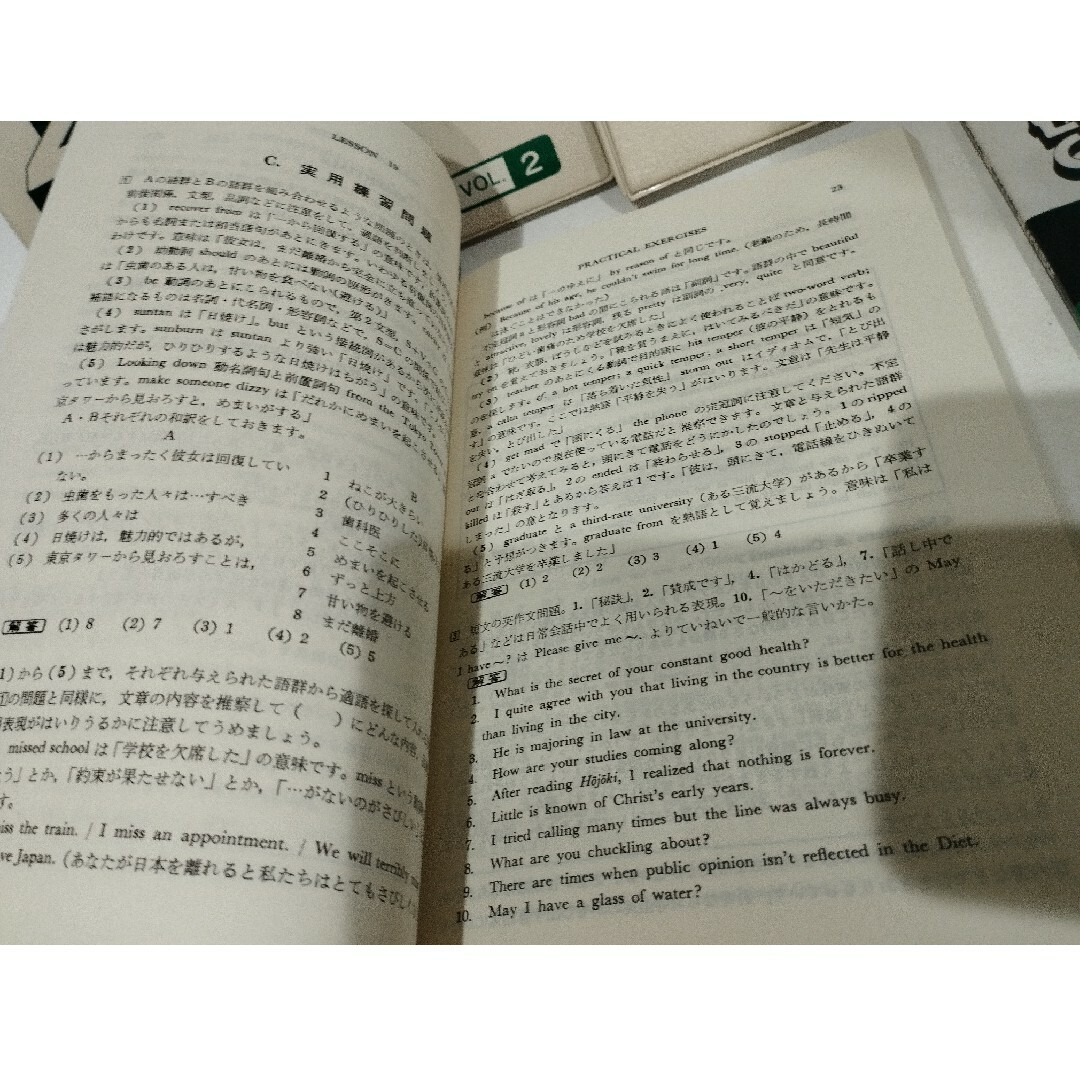 VOL. 2
LESSON 19
C. 実用練習問題
Aの語群とBの語群を組み合わせるような問題のときは、
前後関係,文型,品詞などに注意をして,
(1) recover from は「…から回復する」の意味です。
わけです。意味は「彼女は,まだ離婚から完全に立ち直
(2) 助動詞 should のあとには動詞の原形がきます。
「虫歯のある人は,甘い物を食べない(避ける)
(3) be 動詞のあとにこられるもので,第2文型,
補語になるものは名詞・代名詞・形容詞などで,
(4) suntan は「日焼け」。but という接続詞があるから
さがします。sunburn は suntan より強い「日焼け」です。
は魅力的だが,ひりひりするような日焼けはちがう」
(5) Looking down 動名詞句と前置詞句 from the Tokyo Tower
っています。make someone dizzy は「だれかにめまいを起こさせる
京タワーから見おろすと,めまいがする」
A・Bそれぞれの和訳をしておきます。
A
(1) …からまったく彼女は回復してい
ない。
(2) 虫歯をもった人々は…すべき
(3) 多くの人々は
(4) 日焼けは,魅力的ではあるが,
(5) 東京タワーから見おろすことは,
B
1 ねこが大きらい
2 (ひりひりした)
3 歯科医
4 ここそこに
5 めまいを起こさせる
6 ずっと上方
7 甘い物を避ける
8 まだ離婚
解答 (1) 8 (2) 7 (3) 1 (4) 2 (5) 5
(1)から(5)まで,それぞれ与えられた語群から適語を探して入れ
の問題と同様に,文章の内容を推察して( )にどんな内容
表現がはいりうるかに注意してうめましょう。
missed school は「学校を欠席した」の意味です。miss という動
とか,「約束が果たせない」とか,「…がないのがさびしい
す。
miss the train. / I miss an appointment. / We will terribly
Japan. (あなたが日本を離れると私たちはとてもさびし
PRACTICAL EXERCISES 23
because of は「…のゆえに」 by reason of と同じです。
(例) Because of his age, he couldn't swim for long time. (老齢のため,長時間
は泳ぐことはできなかった)
不定冠詞 a と形容詞 bad の間にこられる語は「副詞」です。語群の中で beautiful
と attractive, lovely は形容詞,残る pretty は副詞の very, quite と同意です。
意味は「ひどい歯痛のため学校を欠席した」
(2) 靴,衣服,ぼうしなどを試みるときによく使われることば two-word verb;
try on を覚えておきましょう。「靴を買うまえに,はいてみるべきだ」の意味です。
(3) teacher のあとにくる動詞で目的語に his temper (彼の平静)をとれるも
のを探します。cf. a hot temper; a quick temper; a short temper は「短気」の
意, a calm temper は「落ち着いた気性」storm out はイディオムで,「とび出
す」の意味です。ここでは熟語「平静を失う」がはいります。文章は「先生は平静
を失い,とび出した」
(4) get mad で「頭にくる」 the phone の定冠詞に注意してください。不定
冠詞 a でないので現在使っている電話だと推察できます。文章と与えられた語群
とを合わせて考えてみると,頭にきて電話をどうにかしたのでしょう。1の ripped
out は「はぎ取る」,2の ended は「終わらせる」,3の stopped「止める」,4の
killed は「殺す」とあるから答えは1です。「彼は,頭にきて,電話線をひきぬいて
しまった」の意となります。
(5) graduate と a third-rate university (ある三流大学)があるから「卒業す
る」と予想がつきます。graduate from を熟語として覚えましょう。意味は「私は
ある三流大学を卒業しました」
解答 (1) 2 (2) 2 (3) 3 (4) 1 (5) 4
短文の英作文問題。1.「秘訣」,2.「賛成です」,4.「はかどる」,7.「話し中で
ある」などは日常会話中でよく用いられる表現。10.「～をいただきたい」の May
I have ～? は Please give me ～. よりていねいで一般的な言いかた。
解答
1. What is the secret of your constant good health?
2. I quite agree with you that living in the country is better for the health
than living in the city.
3. He is majoring in law at the university.
4. How are your studies coming along?
5. After reading Hōjōki, I realized that nothing is forever.
6. Little is known of Christ's early years.
7. I tried calling many times but the line was always busy.
8. What are you chuckling about?
9. There are times when public opinion isn't reflected in the Diet.
10. May I have a glass of water?